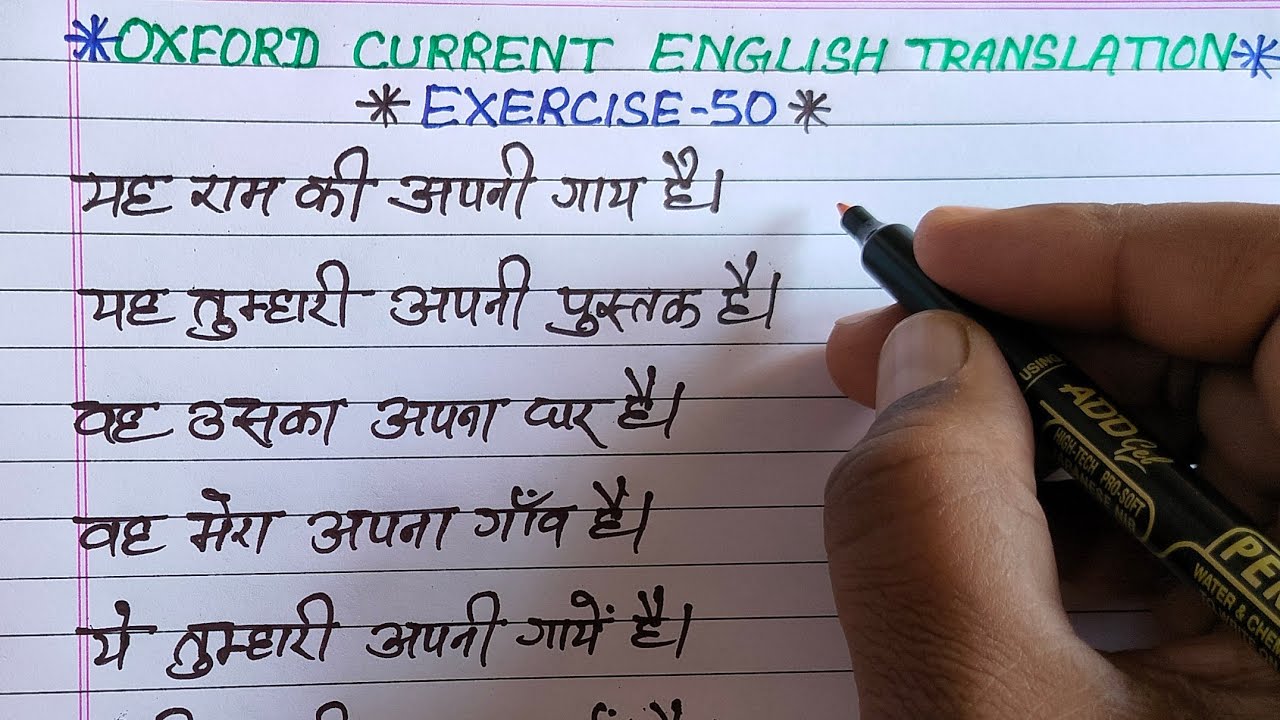 *OXFORD CURRENT ENGLISH TRANSLATION*
*EXERCISE-50*
यह राम की अपनी गाय है।
यह तुम्हारी अपनी पुस्तक है।
वह उसका अपना घर है।
वह मेरा अपना गाँव है।
ये तुम्हारी अपनी गायें है।
USING
ADD Gel
HIGH-TECH PRO-SOFT
JAPANESE NIB
WATER &